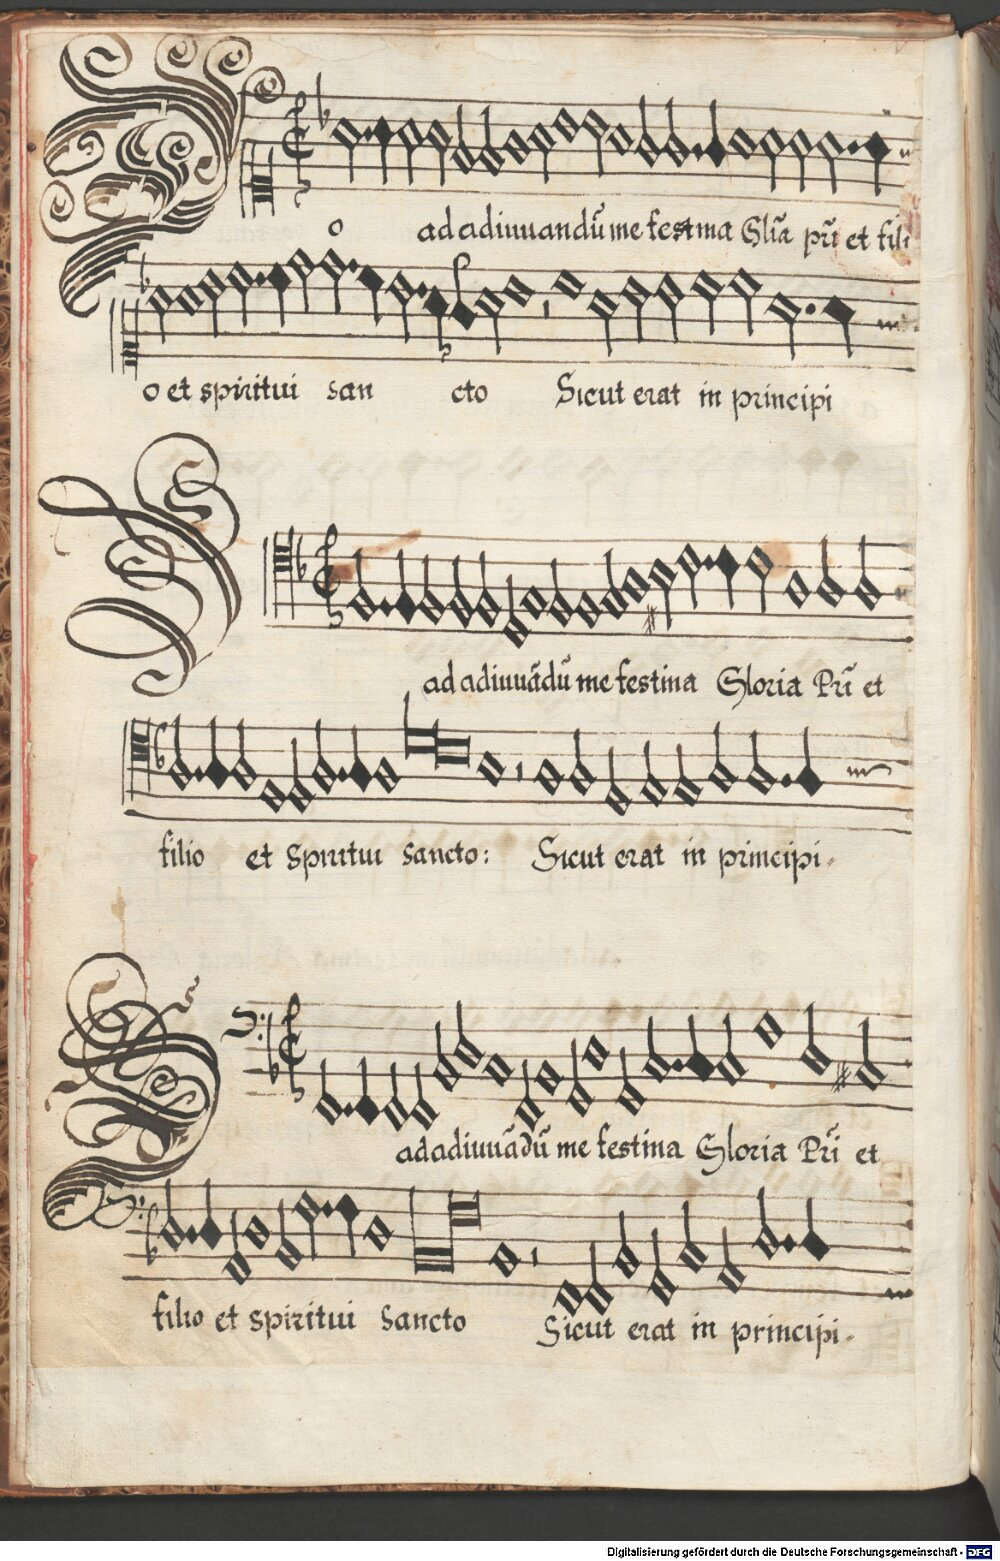 o ad adiuuandū me festina Glīa pr̄i et fili
o et spiritui san cto Sicut erat in principi
ad adiuuādū me festina Gloria Pr̄i et
filio et Spiritui sancto: Sicut erat in principi-
ad adiuuādū me festina Gloria Pr̄i et
filio et spiritui sancto Sicut erat in principi-
Digitalisierung gefördert durch die Deutsche Forschungsgemeinschaft - DFG